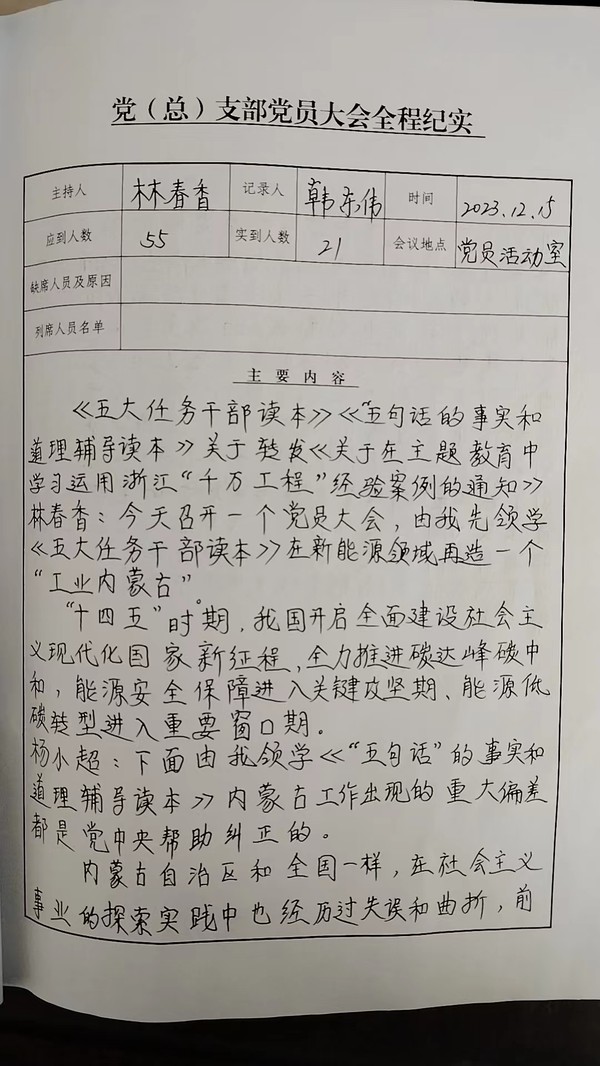 党（总）支部党员大会全程纪实
主持人 林春香 记录人 韩东伟 时间 2023.12.15
应到人数 55 实到人数 21 会议地点 党员活动室
缺席人员及原因
列席人员名单
主要内容
《五大任务干部读本》《“五句话的事实和
道理辅导读本》关于转发《关于在主题教育中
学习运用浙江“千万工程”经验案例的通知》
林春香：今天召开一个党员大会，由我先领学
《五大任务干部读本》在新能源领域再造一个
“工业内蒙古”。
“十四五”时期，我国开启全面建设社会主
义现代化国家新征程，全力推进碳达峰碳中
和，能源安全保障进入关键攻坚期、能源低
碳转型进入重要窗口期。
杨小超：下面由我领学《“五句话”的事实和
道理辅导读本》内蒙古工作出现的重大偏差
都是党中央帮助纠正的。
内蒙古自治区和全国一样，在社会主义
事业的探索实践中也经历过失误和曲折，前